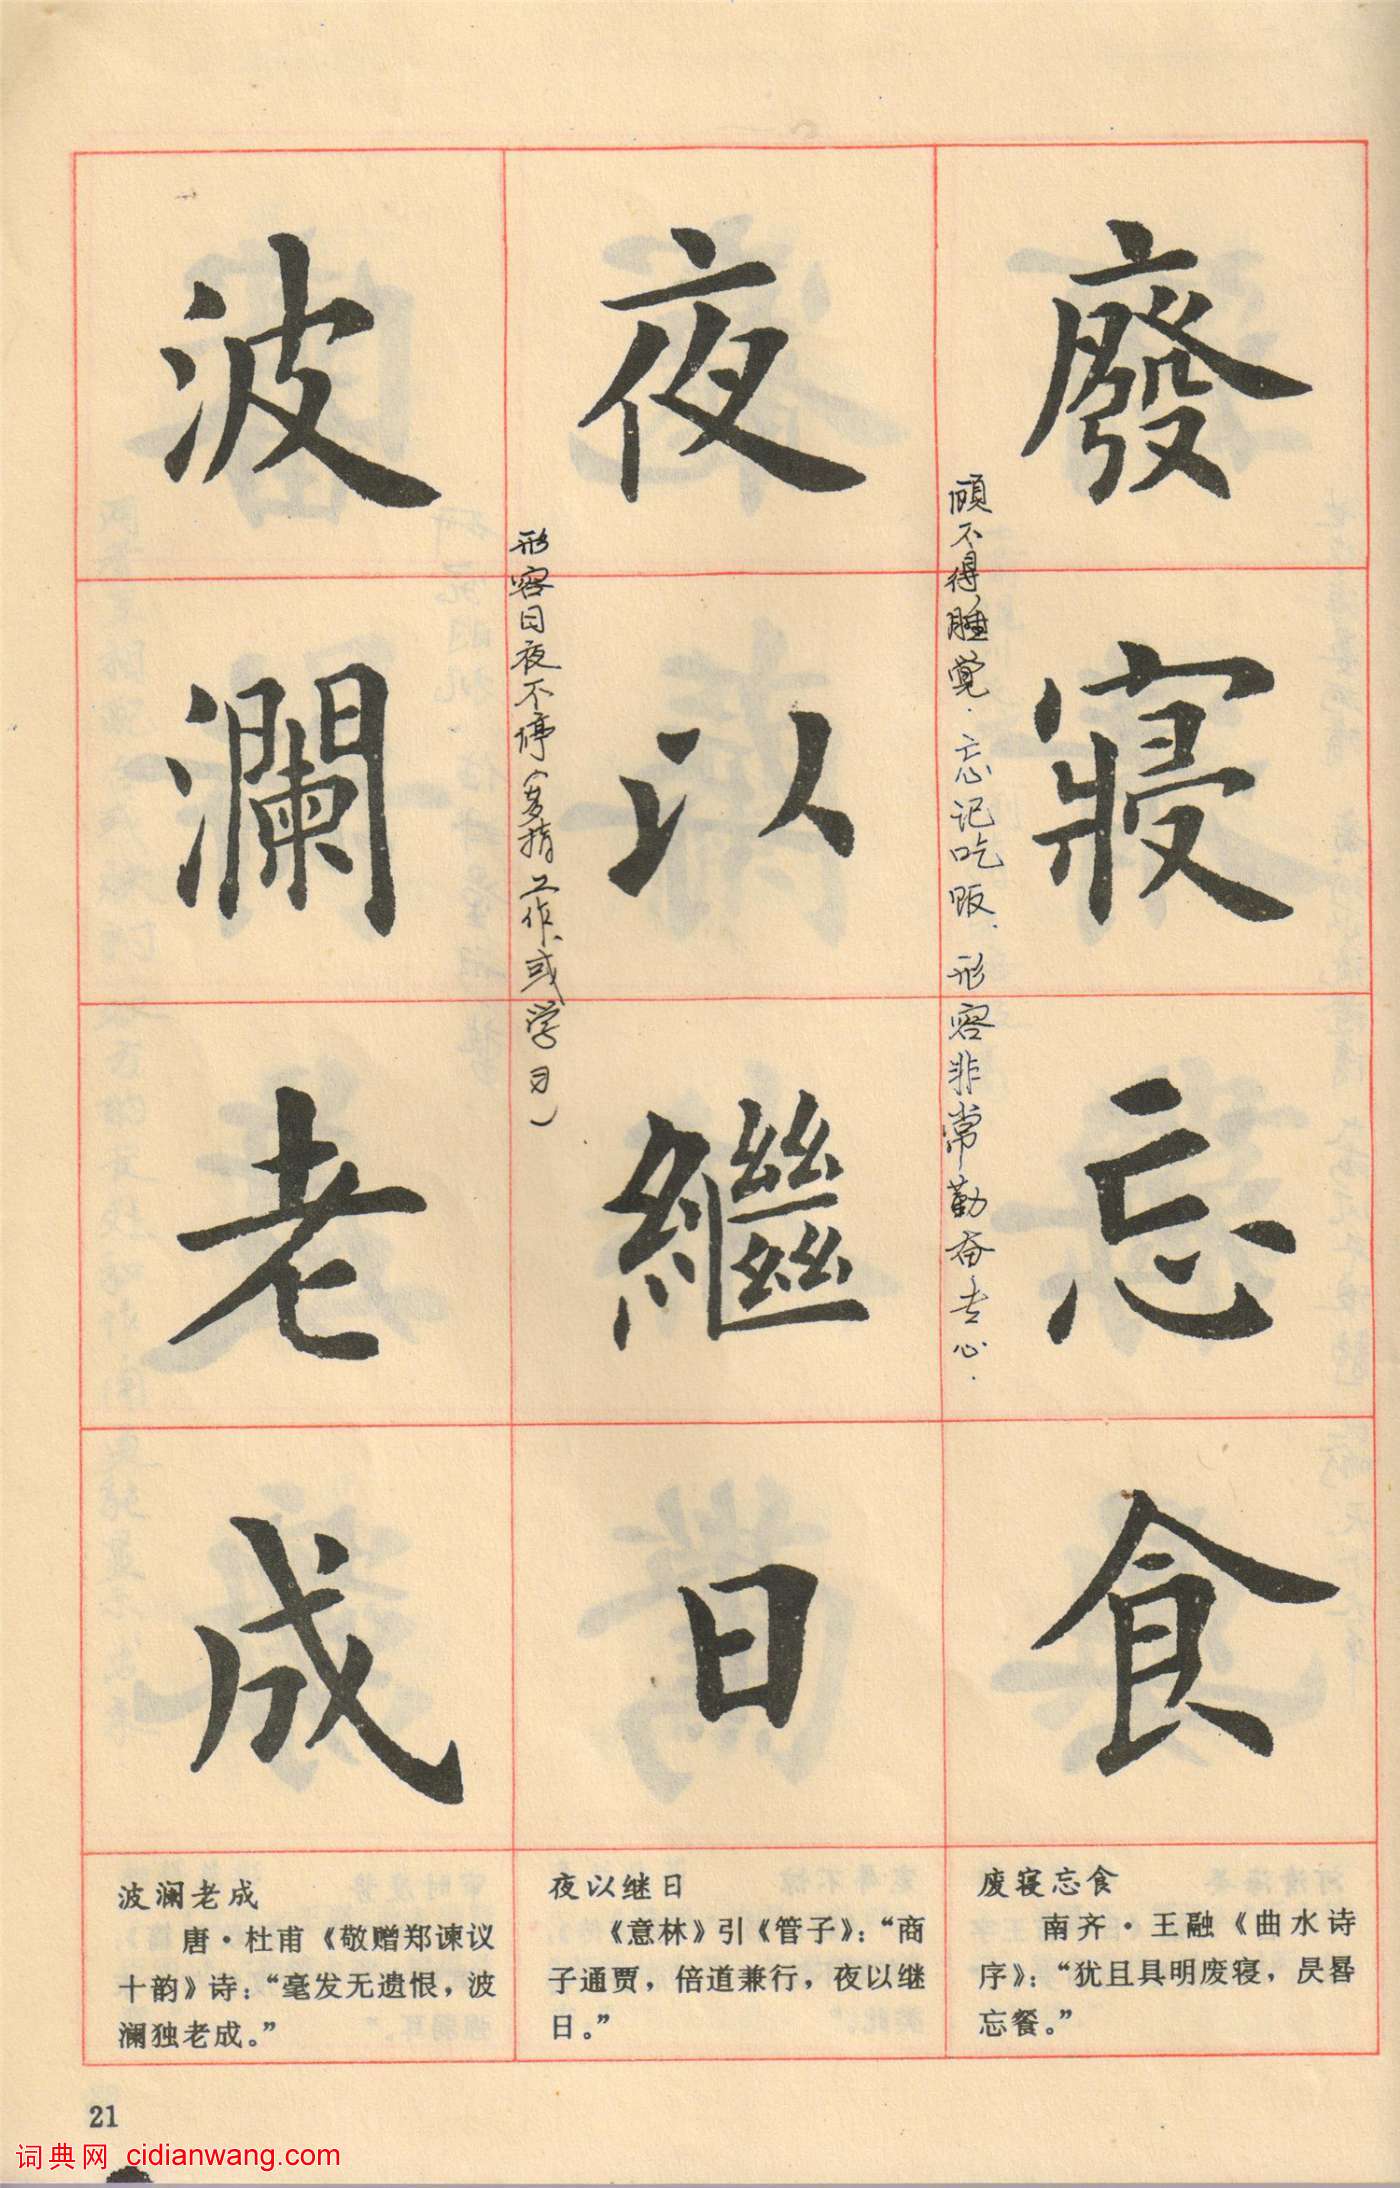 廢寢忘食
顾不得睡觉．忘记吃饭．形容非常勤奋专心．
夜以繼日
形容日夜不停（多指工作或学习）
波瀾老成
废寝忘食
南齐·王融《曲水诗
序》：“犹且具明废寝，昃晷
忘餐。”
夜以继日
《意林》引《管子》：“商
子通贾，倍道兼行，夜以继
日。”
波澜老成
唐·杜甫《敬赠郑谏议
十韵》诗：“毫发无遗恨，波
澜独老成。”
21
词典网 cidianwang.com